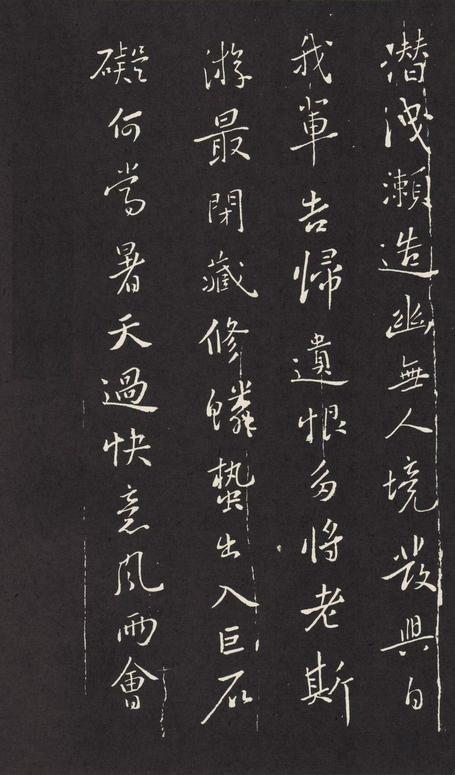 潛洩瀨造幽無人境發興自
我輩告歸遺恨多將老斯
游最閉藏修鱗蟄出入巨石
礙何當暑天過快意風雨會